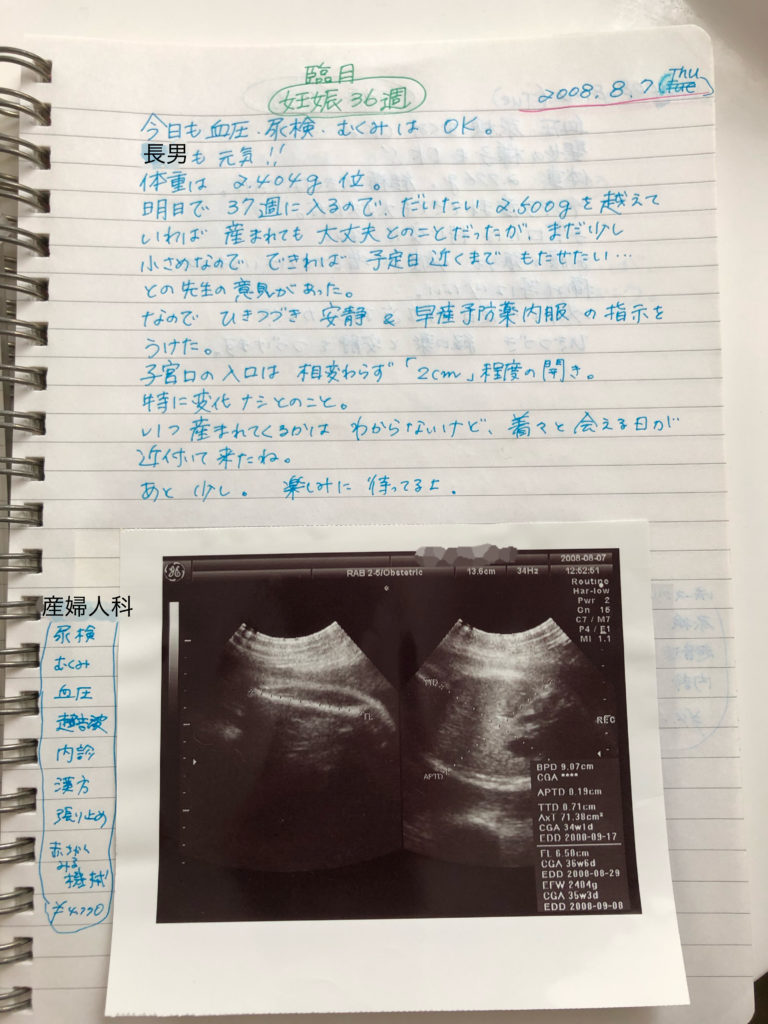 臨月
妊娠36週
2008.8.7 Thu
今日も血圧・尿検・むくみは OK。
長男も元気!!
体重は 2.404g 位。
明日で 37週に入るので、だいたい 2.500gを越えて
いれば 産まれても 大丈夫とのことだったが、まだ少し
小さめなので、できれば 予定日近くまで もたせたい…
との先生の意見があった。
なので ひきつづき 安静 & 早産予防薬内服 の指示を
うけた。
子宮口の入口は 相変わらず「2cm」程度の開き。
特に変化ナシとのこと。
いつ産まれてくるかは わからないけど、着々と 会える日が
近付いて来たね。
あと 少し。 楽しみに 待ってるよ.
産婦人科
尿検
むくみ
血圧
超音波
内診
漢方
張り止め
赤ちゃん
みる
機械
¥4,770
GE
2008-08-07
RAB 2-5/Obstetric 13.6cm 34Hz 12:52:51
Routine
Har-low
Pwr 2
Gn 16
C7 / M7
P4 / E1
MI 1.1
FL
TTD
APTD
REC
BPD 9.07cm
CGA ****
APTD 8.19cm
TTD 8.71cm
AxT 71.38cm²
CGA 34w1d
EDD 2008-09-17
FL 6.50cm
CGA 36w6d
EDD 2008-08-29
EFW 2404g
CGA 35w3d
EDD 2008-09-08